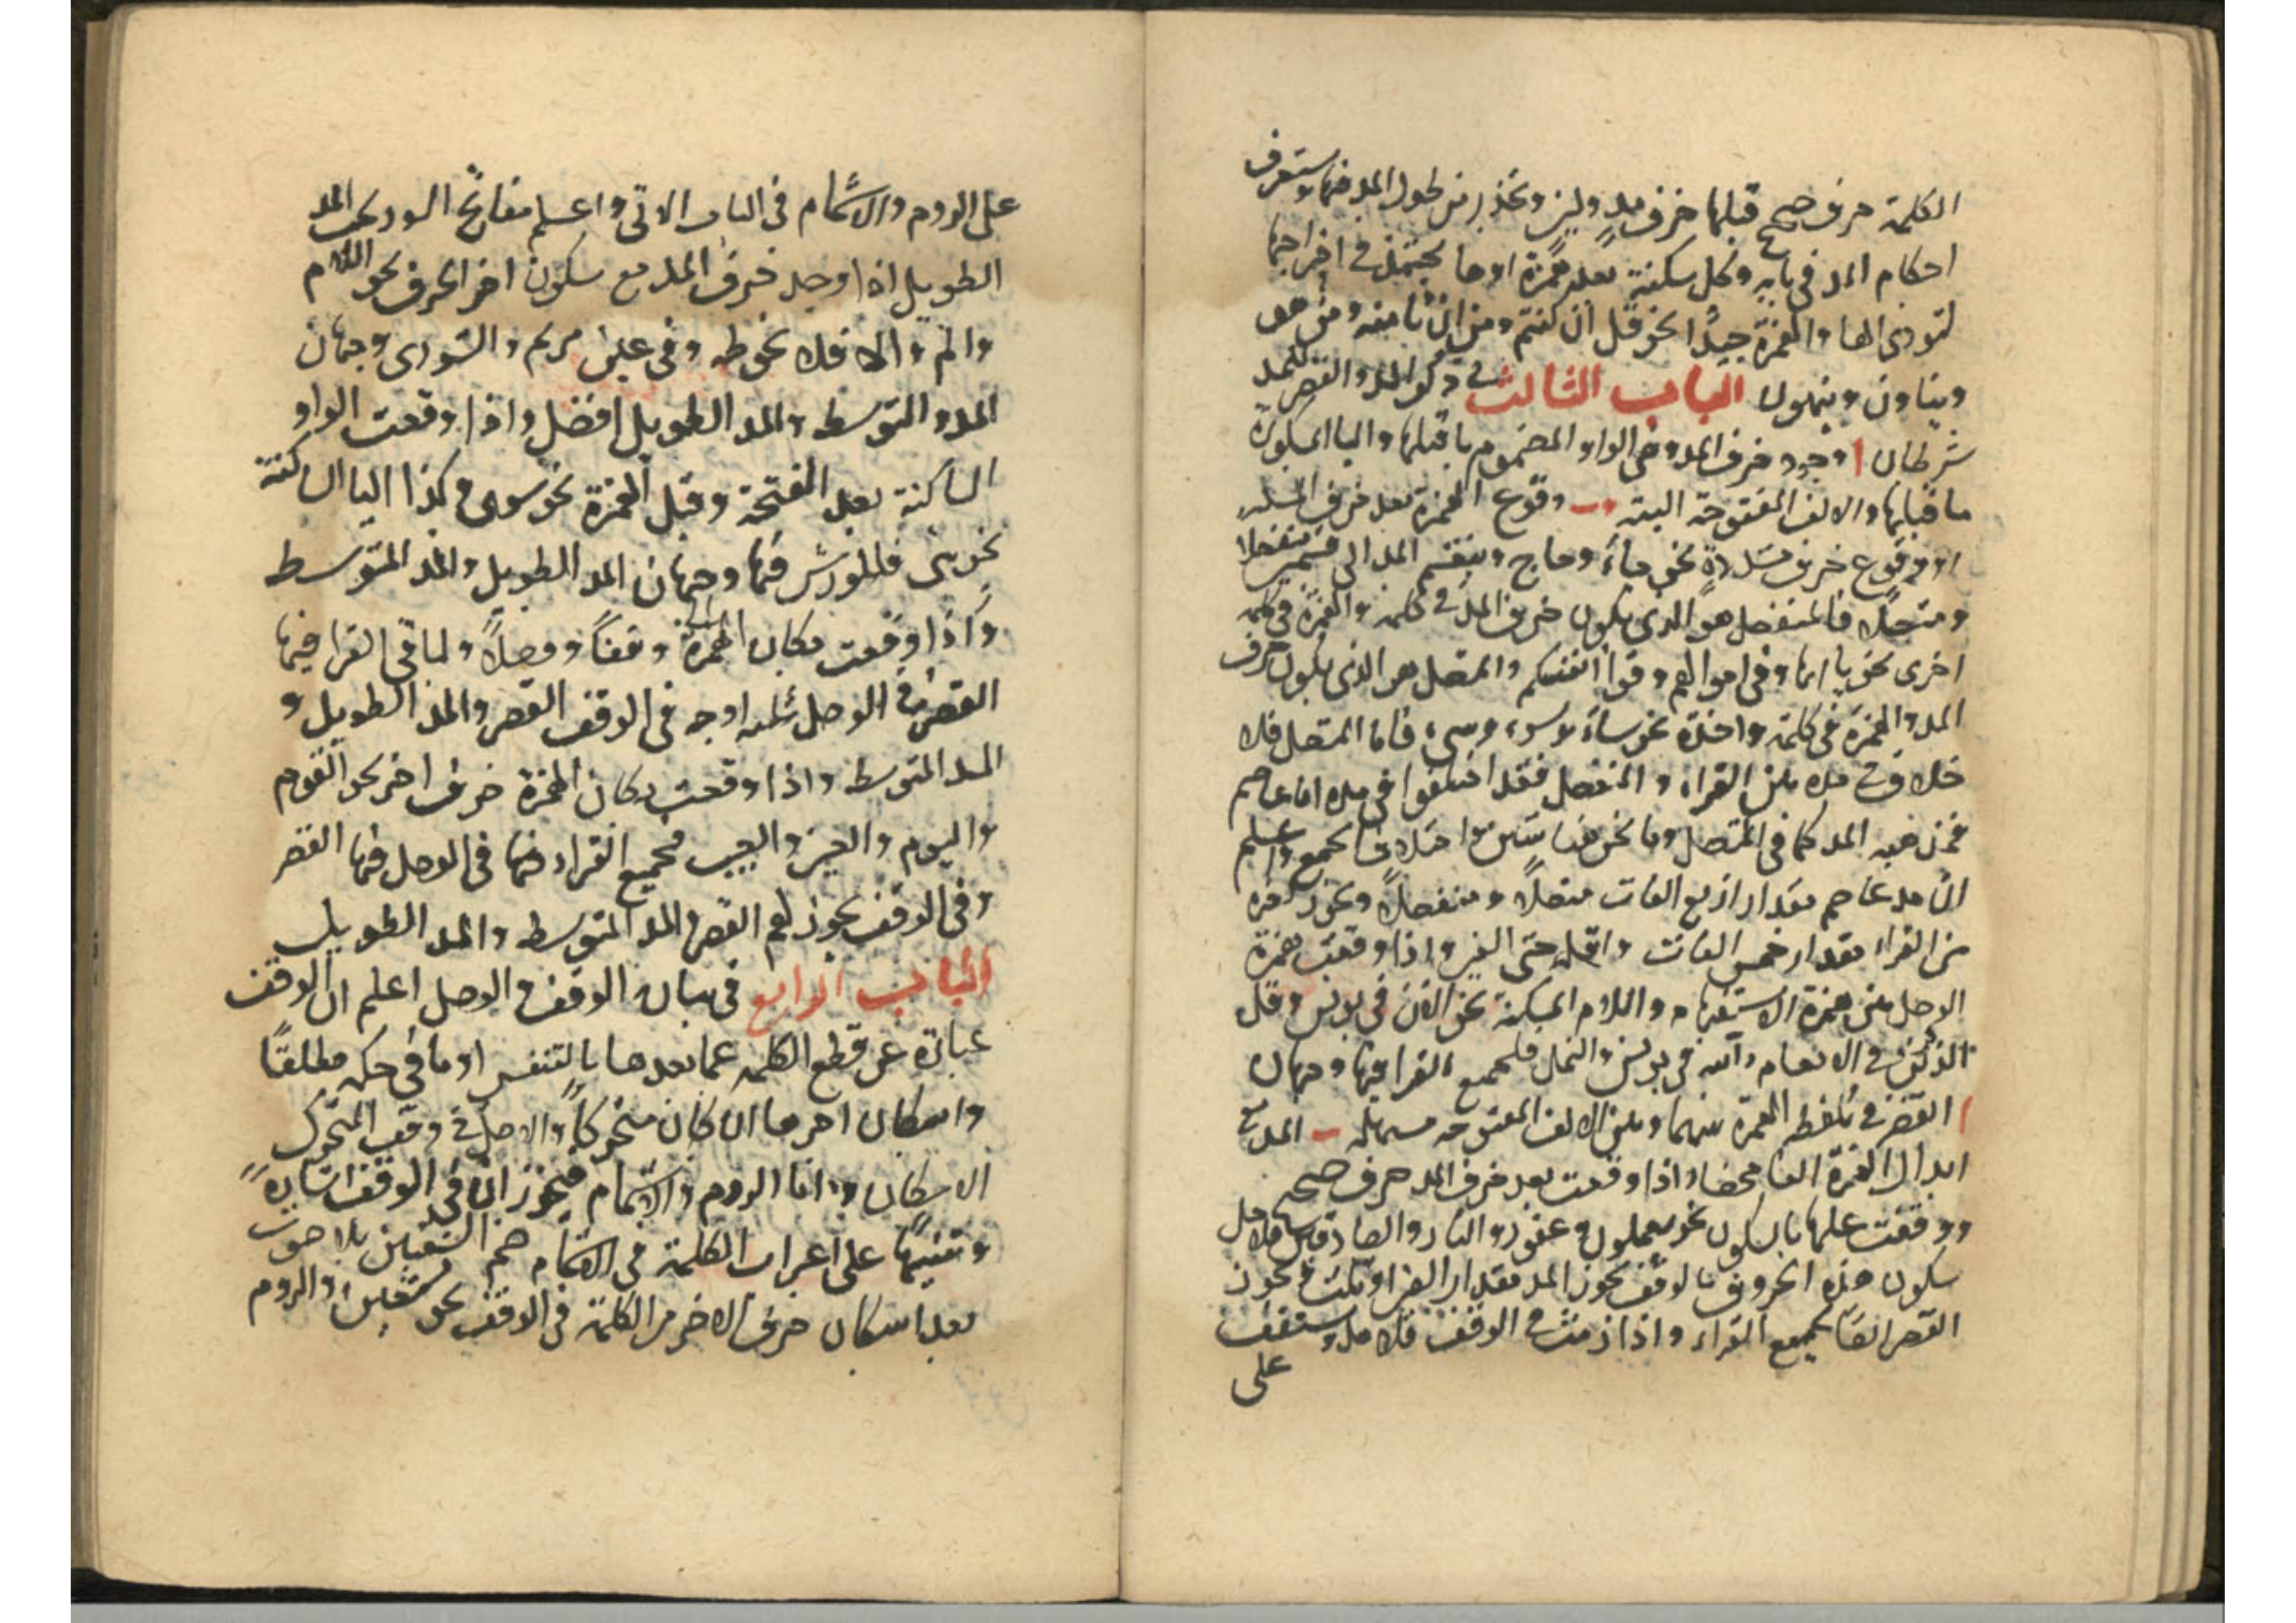 الكلمة حرف صحيح قبلها حرف مد ولين وتحذر من طول المد فيها وستعرف
احكام المد في بابه وكل سكنة بعد همزة اوها يجتهد في اخراجها
لتودى الها والهمزة جيدا نحو قل ان كنتم ومن انثا منه ومن هو
ويناون وينهون الباب الثالث في ذكر المد والقصر للمد
شرطان ا وجود حرف المد وهي الواو المضموم ما قبلها واليا المكسورة
ما قبلها والالف المفتوحة البتة ب وقوع الهمزة بعد حرف المد
او وقوع حرف مشددة نحو جاء وحاج وينقسم المد الى قسمين منفصلا
ومتصلا فالمنفصل هو الذي يكون حرف المد في كلمة والهمزة في كلمة
اخرى نحو يا ايها وفي اموالهم وقوا انفسكم والمتصل هو الذي يكون حرف
المد والهمزة في كلمة واحدة نحو ساء وسوء وسىء فاما المتصل فلا
خلاف في مده بين القراء والمنفصل فقد اختلفوا في مده اما عاصم
فمذهبه المد كما في المتصل وما نحن فيه خلافا لجمع واعلم
ان مد عاصم مقدار اربع الفات متصلا ومنفصلا ونحو
من القراء مقدار خمس الفات واقله حتى الفين واذا وقعت همزة
الوصل بين همزة الاستفهام واللام المسكنة نحو الان في يونس وقل
الذكرين في الانعام والله في يونس والنمل فلجميع القرا فيها وجهان
ا القصر في تلفظ الهمزة بينهما وبين الالف المفتوحة مسهلة ب المد في
ابدال الهمزة الفا محضا واذا وقعت بعد حرف المد حرف صحيح
ووقفت عليها بالسكون نحو يعملون وغفور والنار والصادقين فلاجل
سكون هذه الحروف بالوقف يجوز المد مقدار الفين او ثلث ويجوز
القصر ايضا لجميع القراء واذا رمت في الوقف فلا مد وستقف
على
على الروم والاشمام في الباب الاتي واعلم مفاتح السور يجب المد
الطويل اذا وجد حرف المد مع سكون اخر الحرف نحو اللام
والم والا فلا نحو طه وفي عين مريم والشورى وجهان
المد والتوسط والمد الطويل افضل واذا وقعت الواو
الساكنة بعد الفتحة وقبل الهمزة نحو سوء وكذا اليا الساكنة
نحو شيء فلورش فيها وجهان المد الطويل والمد المتوسط
واذا وقعت مكان الهمزة وقفا ووصلا ولباقي القرا فيها
القصر في الوصل ثلثة اوجه في الوقف القصر والمد الطويل و
المد المتوسط واذا وقعت مكان الهمزة حرف اخر نحو القوم
واليوم والعين والغيب فجميع القراء فيها في الوصل فيها القصر
وفي الوقف يجوز لهم القصر والمد المتوسط والمد الطويل
الباب الرابع في بيان الوقف والوصل اعلم ان الوقف
عبارة عن قطع الكلمة عما بعدها بالتنفس او ما في حكمه مطلقا
واسكان اخرها ان كان متحركا والاصل في وقف المتحرك
الاسكان واما الروم والاشمام فيجوز ان في الوقف اشارة
وتنبيها على اعراب الكلمة في الاشمام ضم الشفتين بلا صوت
بعد اسكان حرف الاخر من الكلمة في الوقف نحو نستعين والروم